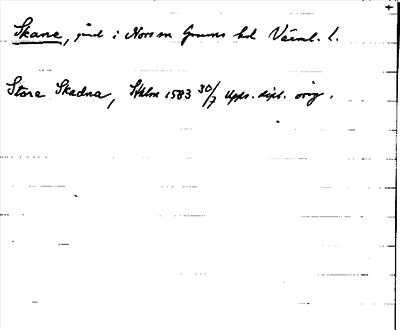 Skane, gård i Nors sn Grums hd Värml. l.
Stora Skadna, Sthlm 1583 30/7 Upps. dipl. orig.